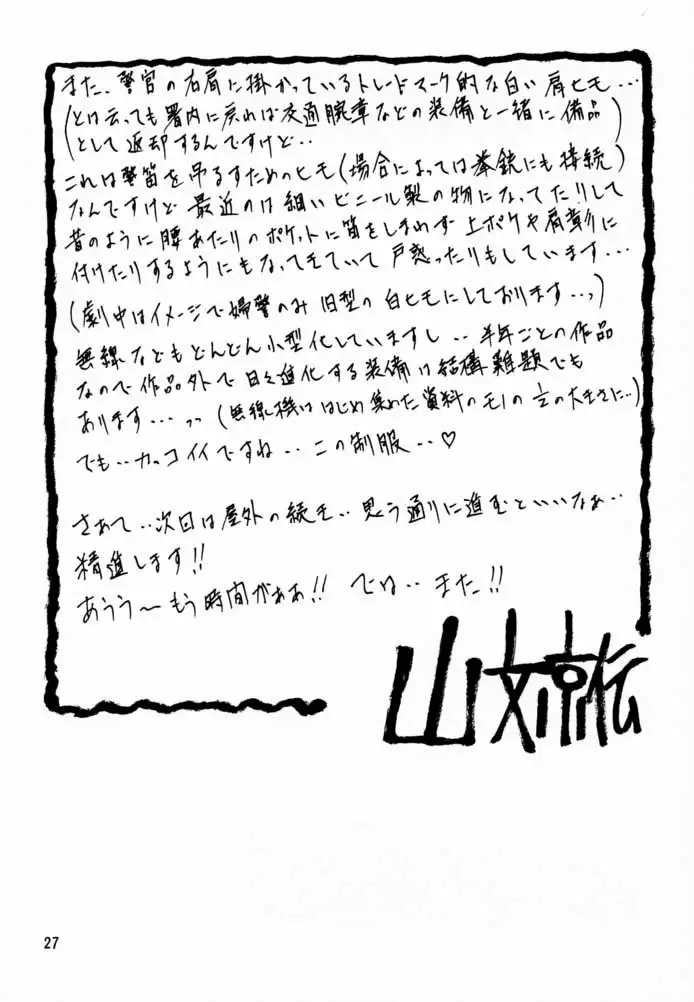 また、警官の右肩に掛かっているトレードマーク的な白い肩ヒモ…
(とは云っても署内に戻れば交通腕章などの装備と一緒に備品
として返却するんですけど‥)
これは警笛を吊るすためのヒモ(場合によっては拳銃にも接続)
なんですけど最近のは細いビニール製の物になってたりして
昔のように腰あたりのポケットに笛をしまわず上ポケや肩章に
付けたりするようにもなってきていて戸惑ったりもしています…
(劇中はイメージで婦警のみ旧型の白ヒモにしております…っ)
無線などもどんどん小型化していますし‥半年ごとの作品
なので作品外で日々進化する装備は結構難題でも
あります…っっ(無線機ははじめ集めた資料のモノの½の大きさに‥)
でも‥カッコイイですね‥この制服‥♡
さあて‥次回は屋外の続き‥思う通りに進むといいなぁ‥
精進します!!
あうう〜もう時間がぁぁ!! では‥また!!
山文京伝
27